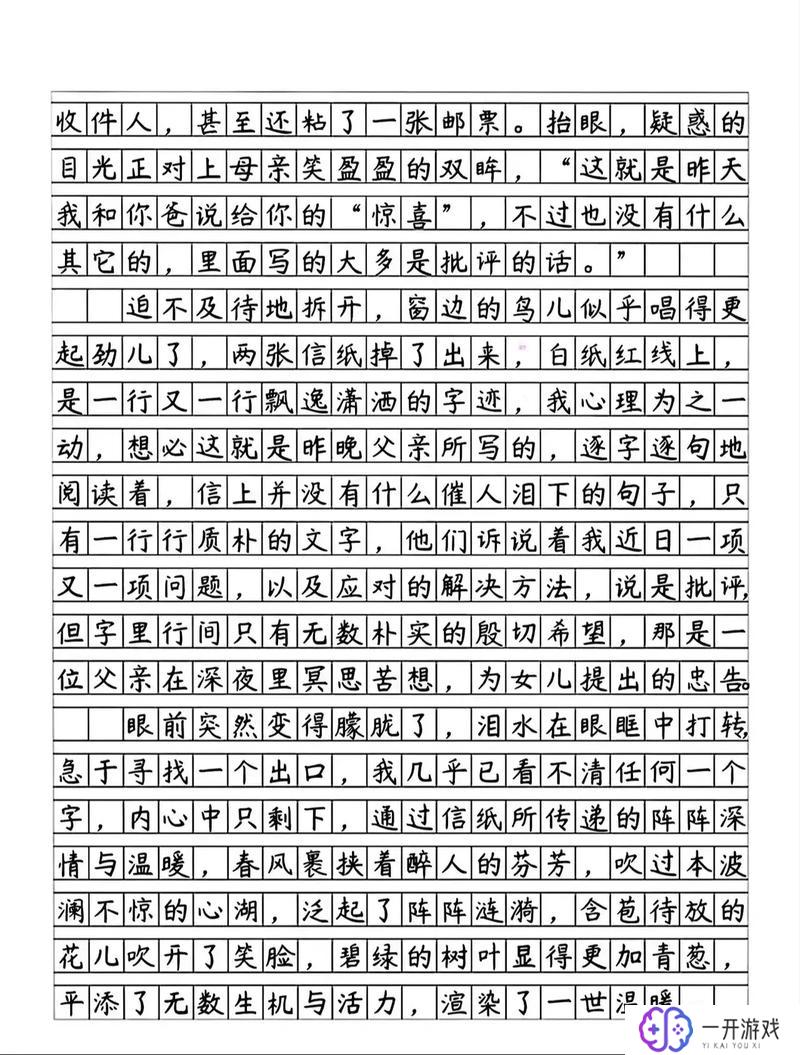 收件人，甚至还粘了一张邮票。抬眼，疑惑的
目光正对上母亲笑盈盈的双眸，“这就是昨天
我和你爸说给你的“惊喜”，不过也没有什么
其它的，里面写的大多是批评的话。”
迫不及待地拆开，窗边的鸟儿似乎唱得更
起劲儿了，两张信纸掉了出来，白纸红线上，
是一行又一行飘逸潇洒的字迹，我心理为之一
动，想必这就是昨晚父亲所写的，逐字逐句地
阅读着，信上并没有什么催人泪下的句子，只
有一行行质朴的文字，他们诉说着我近日一项
又一项问题，以及应对的解决方法，说是批评，
但字里行间只有无数朴实的殷切希望，那是一
位父亲在深夜里冥思苦想，为女儿提出的忠告。
眼前突然变得朦胧了，泪水在眼眶中打转，
急于寻找一个出口，我几乎已看不清任何一个
字，内心中只剩下，通过信纸所传递的阵阵深
情与温暖，春风裹挟着醉人的芬芳，吹过本波
澜不惊的心湖，泛起了阵阵涟漪，含苞待放的
花儿吹开了笑脸，碧绿的树叶显得更加青葱，
平添了无数生机与活力，渲染了一世温暖
一开游戏
YI KAI YOU XI